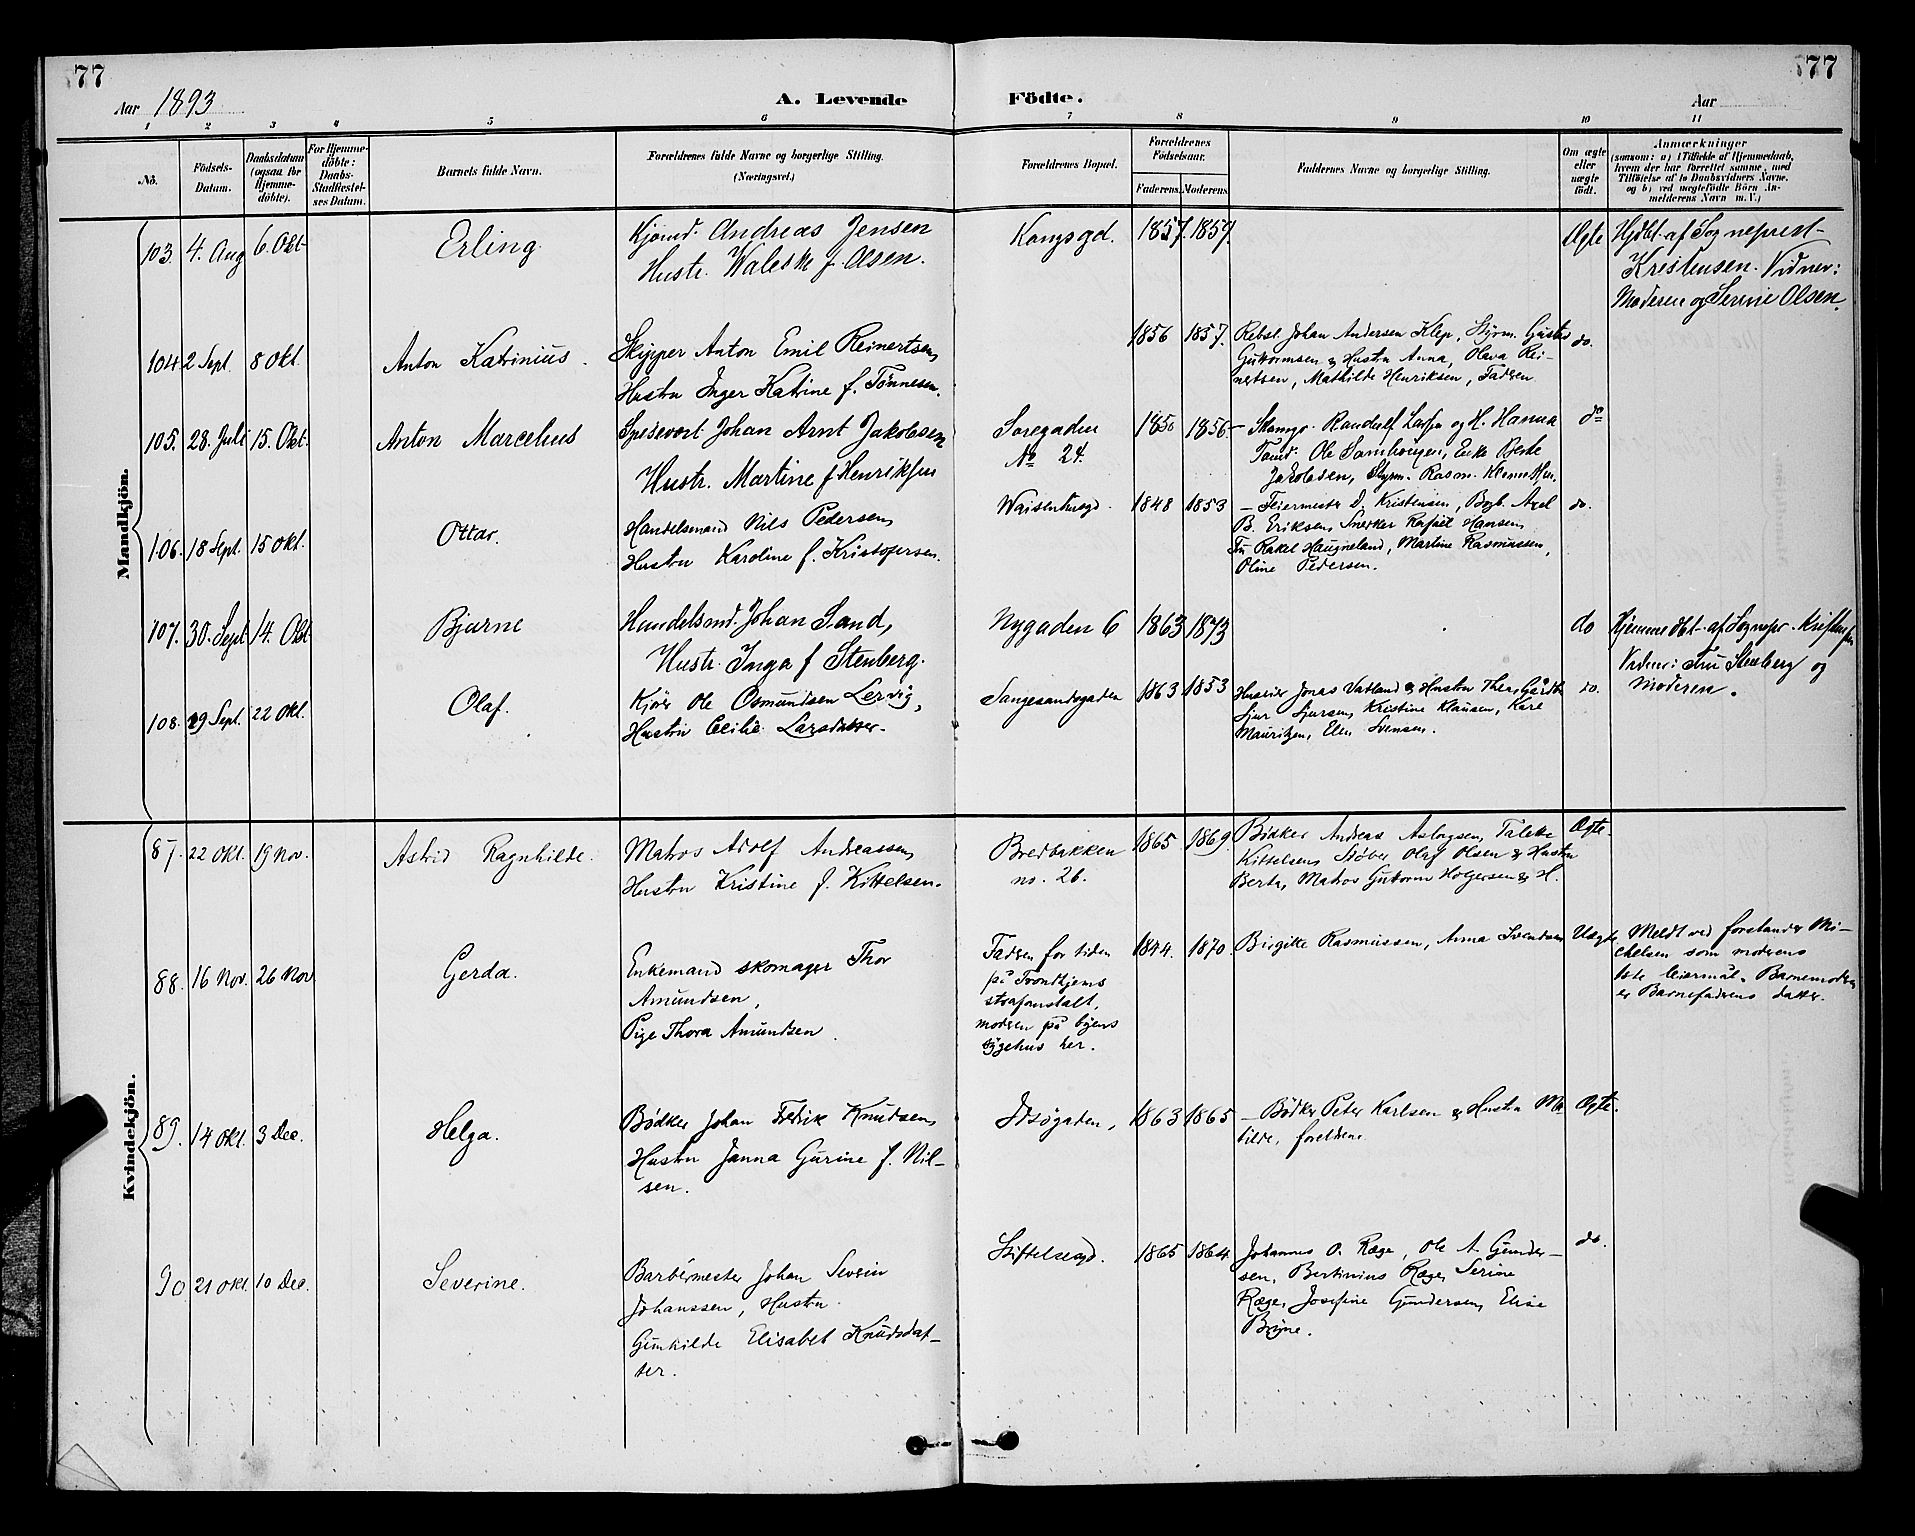 77
77
Aar 1893
A. Levende
Födte.
Aar
1 2 3 4 5 6 7 8 9 10 11
No.
Födsels-Datum.
Daabsdatum (ogsaa for Hjemme-döbte).
For Hjemme-döbte: Daabs-Stadfæstel-ses Datum.
Barnets fulde Navn.
Forældrenes fulde Navne og borgerlige Stilling.
(Næringsvei.)
Forældrenes Bopæl.
Forældrenes Födselsaar.
Faderens. Moderens.
Faddernes Navne og borgerlige Stilling.
Om ægte eller uægte födt.
Anmærkninger
(saasom: a) i Tilfælde af Hjemmedaab,
hvem der har forrettet samme, med
Tilföielse af to Daabsvidners Navne,
og b) ved uægtefödte Börn An-
melderens Navn m. V.)
Mandkjön.
103. 4. Aug 6. Okt. Erling
Kjömd. Andreas Jensen
Hustr. f. Olsen.
Kongsgd. 1857. 1859.
Ægte
Hjdbt. af Sogneprest
Kristensen. Vidner:
Moderen og Serine Olsen.
104. 2 Sept. 8 Okt. Anton Katrinius.
Skipper Anton Emil Reinertsen,
Hustru Inger Katrine f. Tönnesen.
1856 1857.
Rebsl. Johan Andersen Klep, Styrm. Gustav
Guttormsen & Hustru Anna, Olava Rei-
nertsen, Mathilde Henriksen, Faderen
do.
105. 28. Juli 15. Okt. Anton Marcelius
Johan Arnt Jakobsen
Hustr. Martine f. Henriksen
No 24.
1850 1856
og H. Hanna
Ole Enke Berte
Jakobsen, Styrm. Rasm.
do
106. 18 Sept. 15 Okt. Ottar.
Handelsmand Nils Pedersen,
Hustru Karoline f. Kristofersen.
Waisenhusgd. 1848 1853
— Feiermester D. Kristensen, Axel
B. Eriksen, Snekker Rafael Hansen,
Fru Rakel Haugneland, Martine Rasmussen,
Oline Pedersen.
do.
107. 30. Sept 14. Okt Bjarne
Handelsmd. Johan Sand,
Hustr. Inga f. Stenberg.
Nygaden 6 1863 1873
do
Hjemmedbt. af Sognepr. Kristensen
Vidner: Fru Stenberg og
Moderen.
108. 29 Sept. 22 Okt. Olaf.
Kjörer Ole Osmundsen Lervig,
Hustru Cecilie Larsdatter.
Langesandsgaden 1863 1853
Jonas Vatland & Hustru
Sjur Sjursen, Kristine Klausen, Karl
Mauritzen, Elen Svensen.
do.
Kvindekjön.
87. 22 Okt. 19 Nov. Astrid Ragnhilde.
Matros Adolf Andreassen,
Hustru Kristine f. Kittelsen.
Bredbakken
no. 26.
1865 1869.
Bödker Andreas Aslagsen, Talette
Kittelsen, Stöber Olaf Olsen & Hustru
Berta, Matros Guttorm Holgersen & H.
Ægte.
88. 16 Nov. 26 Nov Gerda.
Enkemand skomager Thor
Amundsen,
Pige Thora Amundsen.
Faderen for tiden
på Trondhjems
strafanstalt,
moderen på byens
sygehus her.
1844. 1870.
Birgitte Rasmussen, Anna Svendsen
Uægte
Meldt ved forstander Mi-
chelsen som moderens
1ste leiermål. Barnemoderen
er Barnefaderens datter.
89. 14 Okt. 3 Dec. Helga.
Bödker Johan Fredrik Knudsen,
Hustru Janna Gurine f. Nil-
sen.
1863 1865
— Bödker Peter Karlsen & Hustru Ma-
tilde, foreldrene.
Ægte.
90. 21 Okt. 10 Dec. Severine.
Barbérmester Johan Severin
Johanssen, Hustru
Gunhilde Elisabet Knudsdat-
ter.
Stiftelsesgd. 1865 1864.
Johannes O. Ræge, Ole A. Gunder-
sen, Bertinius Ræge, Serine
Ræge, Josefine Gundersen, Elise
Bryne.
do.